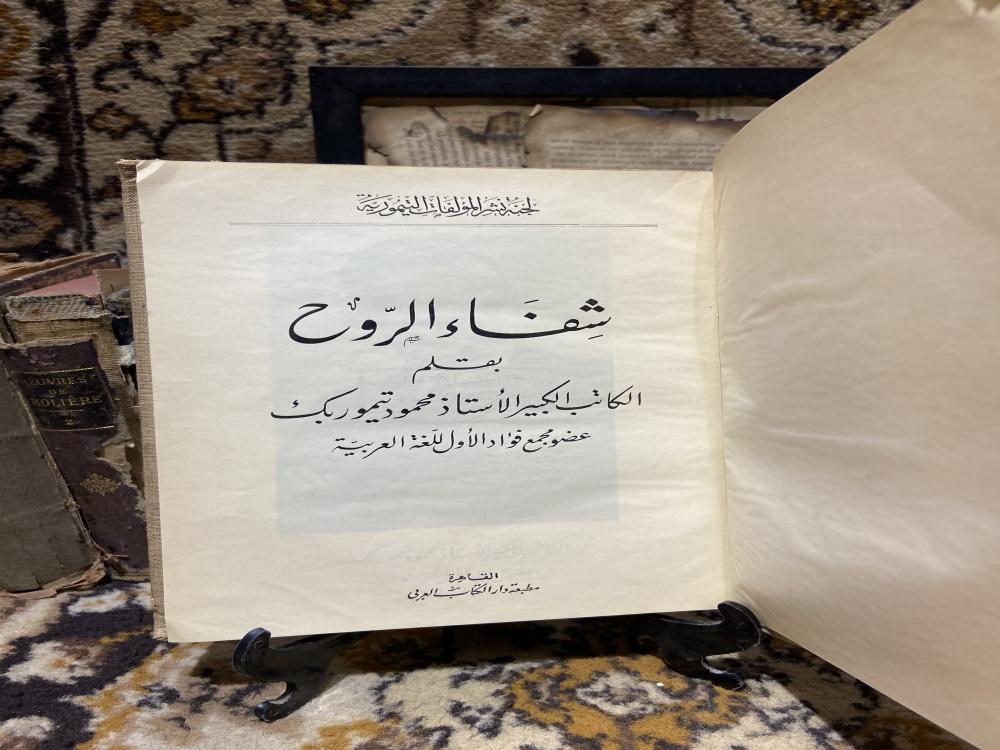 لجنة نشر المؤلفات التيمورية
شِفَاء الرّوح
بقلم
الكاتب الكبير الأستاذ محمود تيمور بك
عضو مجمع فؤاد الأول للغة العربيّة
القاهرة
مطبعة دار الكتاب العربى
ŒUVRES
DE
MOLIÈRE
2